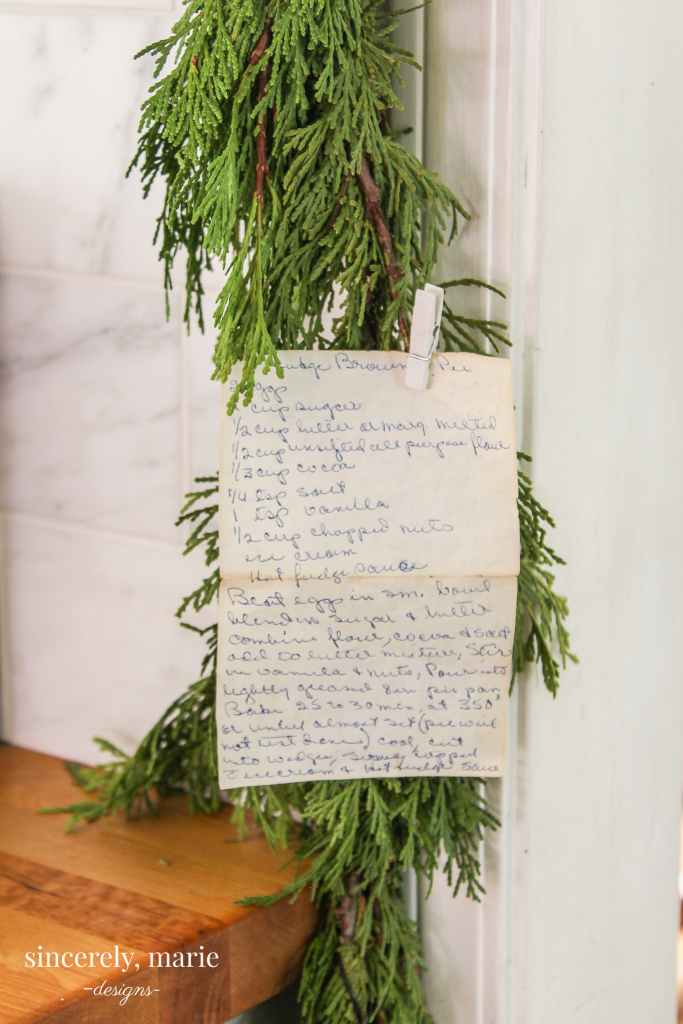 Fudge Brownie Pie
2 eggs
cup sugar
1/2 cup butter or marg melted
1/2 cup unsifted all purpose flour
1/3 cup cocoa
1/4 tsp salt
1 tsp vanilla
1/2 cup chopped nuts
ice cream
Hot fudge sauce
Beat eggs in sm. bowl
blend in sugar & butter
combine flour, cocoa & salt
add to butter mixture, Stir
in vanilla & nuts, Pour into
lightly greased 8 in. pie pan,
Bake 25 to 30 min, at 350°
or until almost set (pie will
not test done) cool, cut
into wedges, serve topped
c ice cream & Hot fudge sauce
sincerely, marie
-designs-